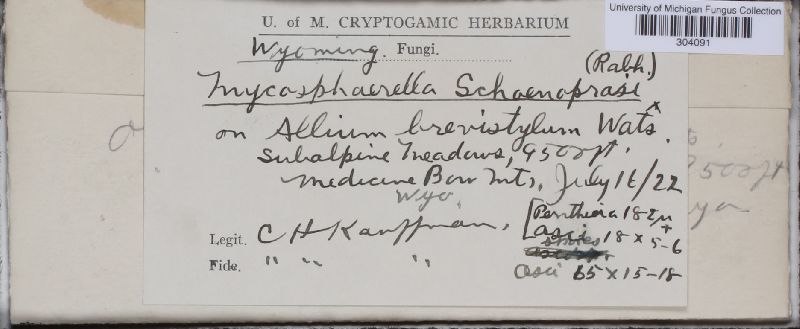 University of Michigan Fungus Collection
304091
U. of M. CRYPTOGAMIC HERBARIUM
Wyoming. Fungi.
(Rabh.)
Mycosphaerella Schoenoprasi
on Allium brevistylum Wats.
Subalpine Meadows, 9500 ft.
Medicine Bow Mts, July 16/22
Wyo.
Legit. C H Kauffman.
[Perithecia 182µ
spores 18 x 5-6
Fide. " " "
asci 65 x 15-18
9500 ft